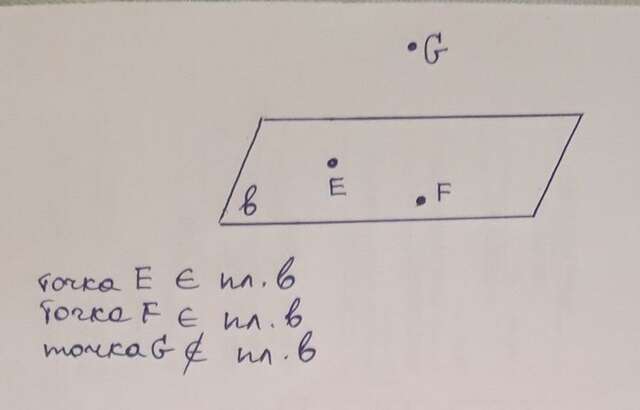 G
E
F
в
точка E ∈ пл. в
точка F ∈ пл. в
точка G ∉ пл. в